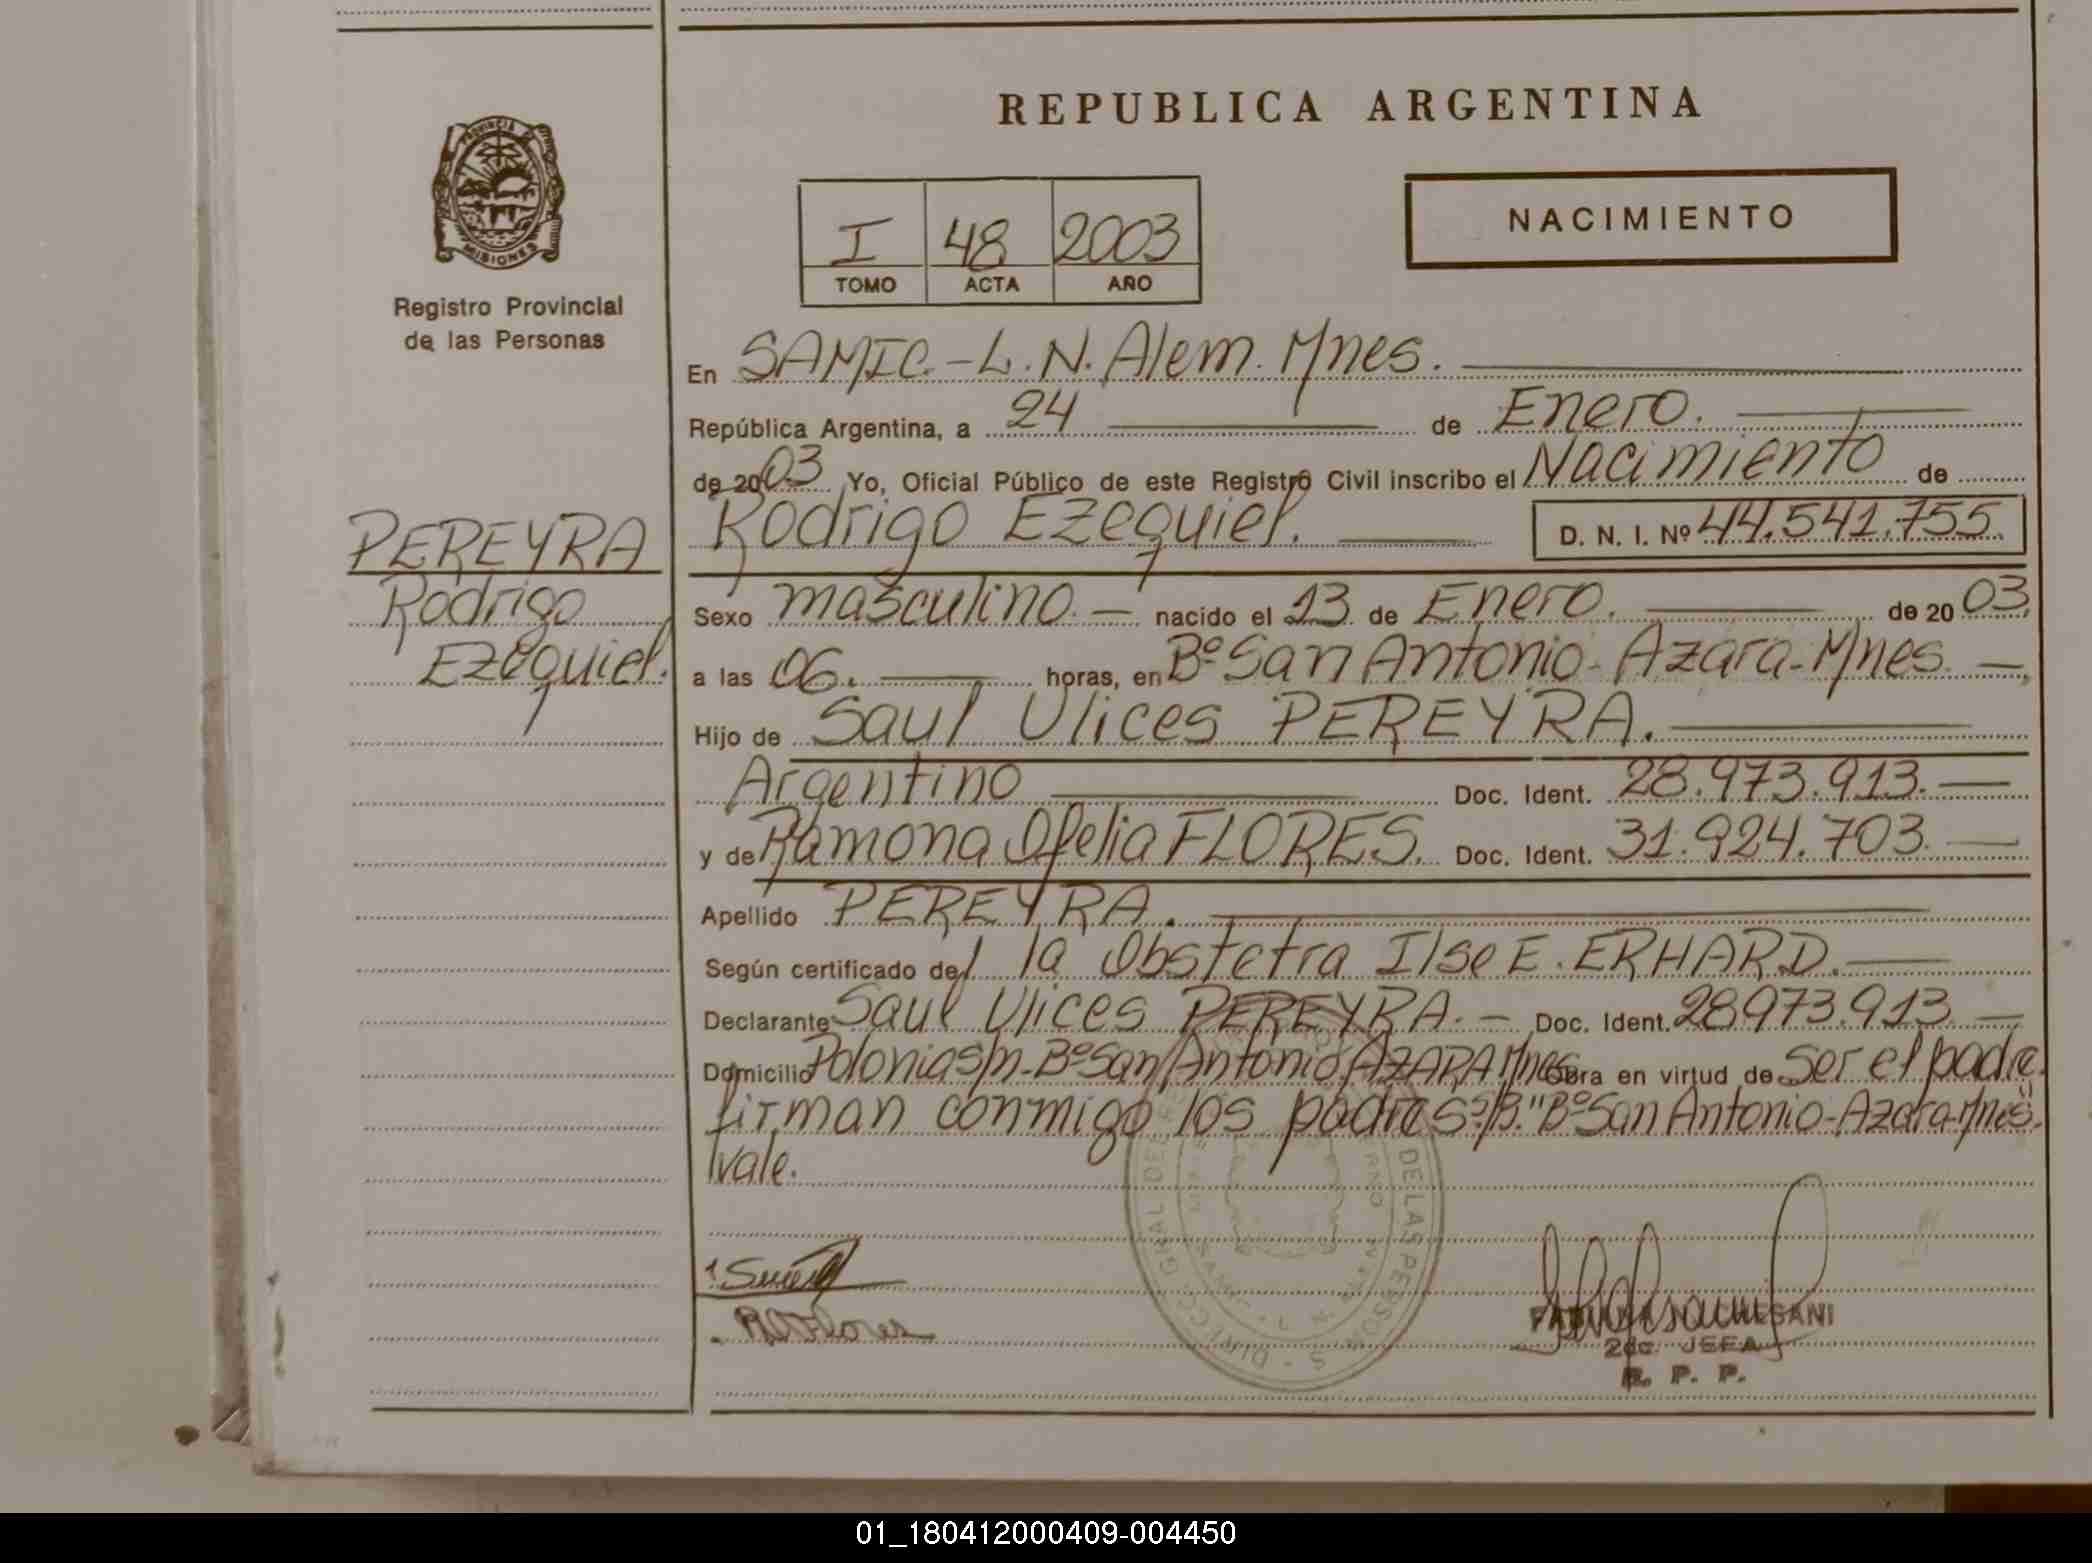 REPUBLICA ARGENTINA
PROVINCIA DE
MISIONES
Registro Provincial
de las Personas
NACIMIENTO
I 48 2003
TOMO ACTA AÑO
En SAMIC.-L.N. Alem. Mnes.
República Argentina, a 24 de Enero.
de 2003 Yo, Oficial Público de este Registro Civil inscribo el Nacimiento de
Rodrigo Ezequiel. D. N. I. Nº 44.541.755.
PEREYRA
Rodrigo
Ezequiel.
Sexo masculino. nacido el 13 de Enero. de 2003
a las 06. horas, en Bº San Antonio-Azara-Mnes.
Hijo de Saul Ulices PEREYRA.
Argentino Doc. Ident. 28.973.913.
y de Ramona Ofelia FLORES. Doc. Ident. 31.924.703.
Apellido PEREYRA.
Según certificado de la Obstetra Ilse E. ERHARD.
Declarante Saul Ulices PEREYRA. Doc. Ident. 28973.913.
Domicilio Polonia s/n-Bº San Antonio AZARA Mnes. Obra en virtud de Ser el padre.
firman conmigo los padres. S/B. "Bº San Antonio-Azara-Mnes".
vale.
DE LAS PERSONAS
R Flores
2da. JEFA
R. P. P.
01_180412000409-004450